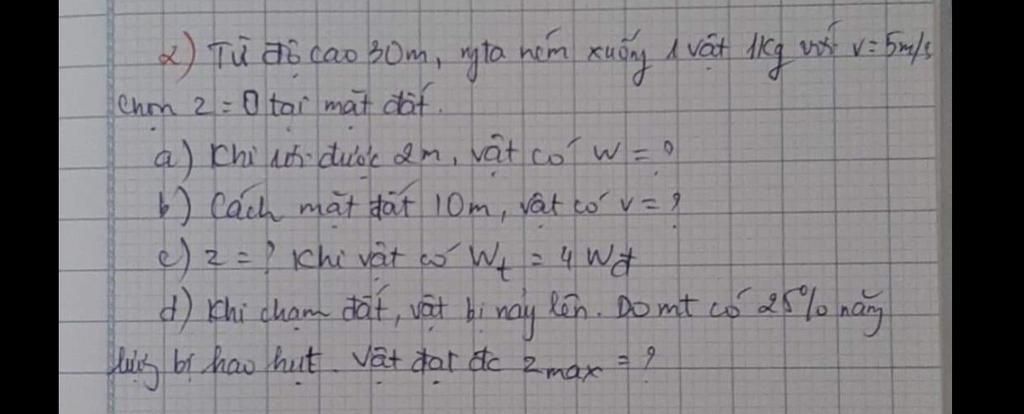 2) Từ độ cao 30m, ngta ném xuống 1 vật 1kg với v = 5m/s
chọn z = 0 tại mặt đất.
a) Khi rơi được 2m, vật có W = ?
b) Cách mặt đất 10m, vật có v = ?
c) z = ? Khi vật có Wt = 4 Wđ
d) Khi chạm đất, vật bị nảy lên. Do mt có 25% năng
lượng bị hao hụt. Vật đạt đc zmax = ?